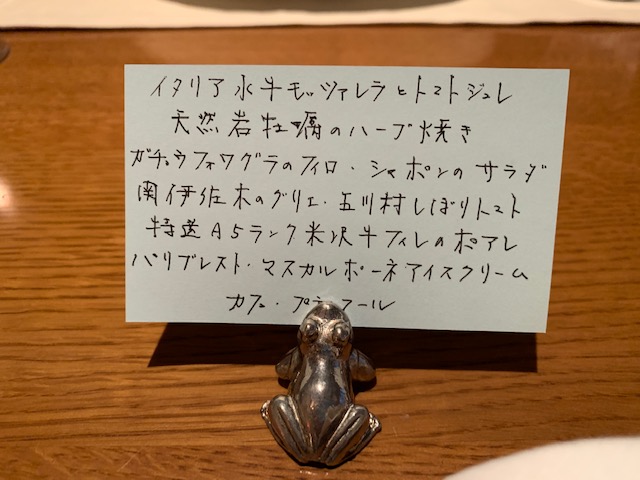 イタリア水牛モッツァレラとトマトジュレ
天然岩牡蠣のハーブ焼き
ガチョウフォワグラのフィロ・シャポンのサラダ
関伊佐木のグリエ・五川村しぼりトマト
特選A5ランク米沢牛フィレのポアレ
パリブレスト・マスカルポーネアイスクリーム
カフェ・プティフール